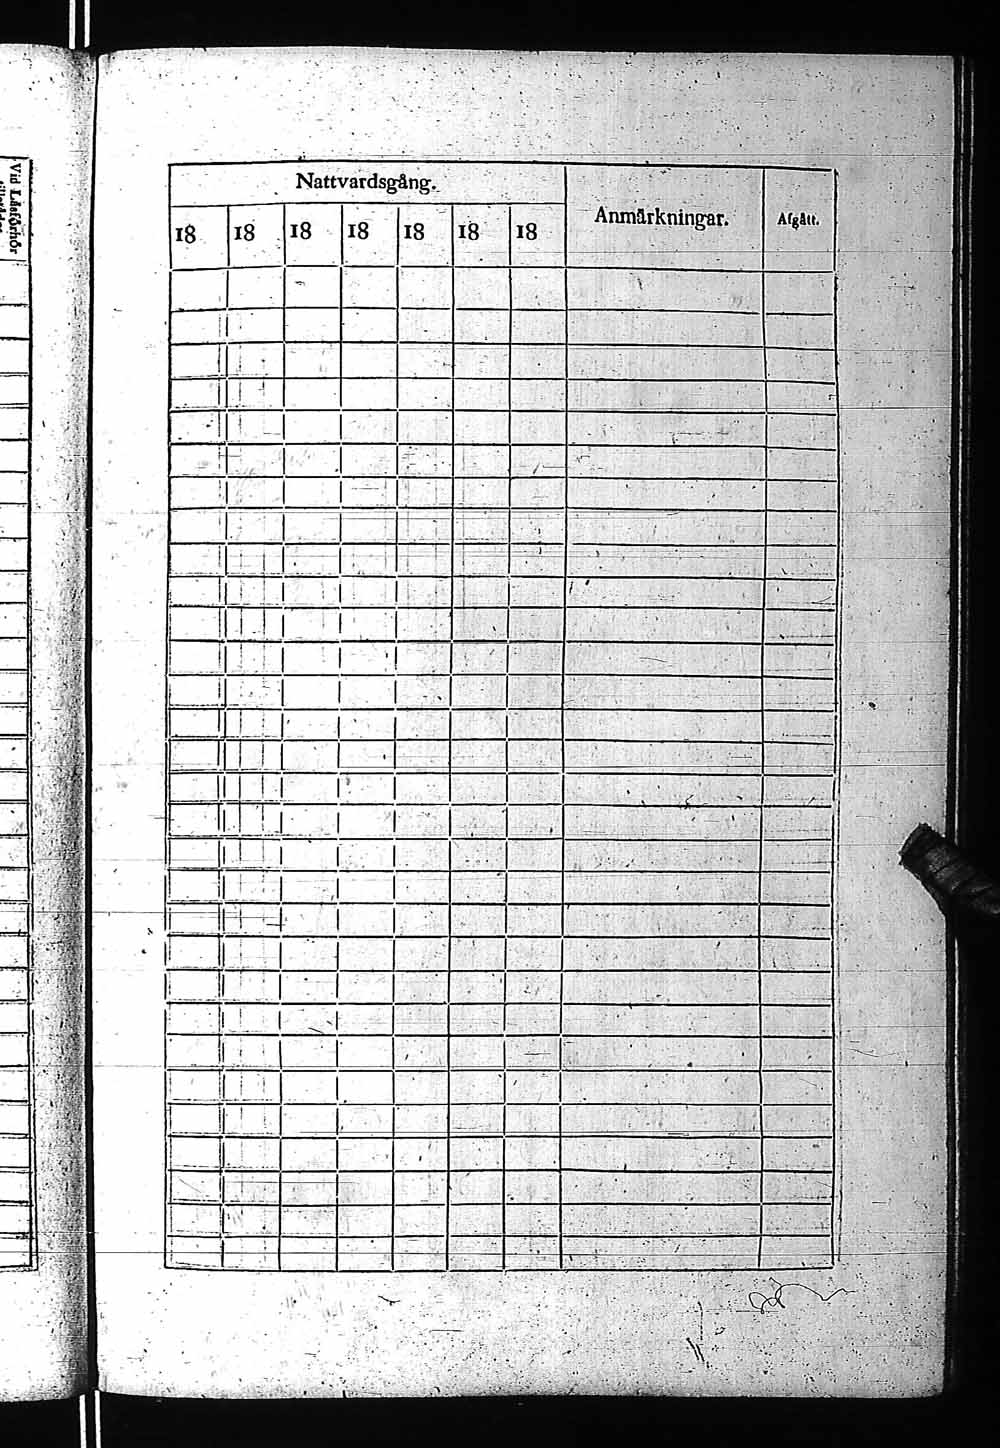 Vid Läsförhör
Nattvardsgång.
Anmärkningar.
Afgått.
18 18 18 18 18 18 18